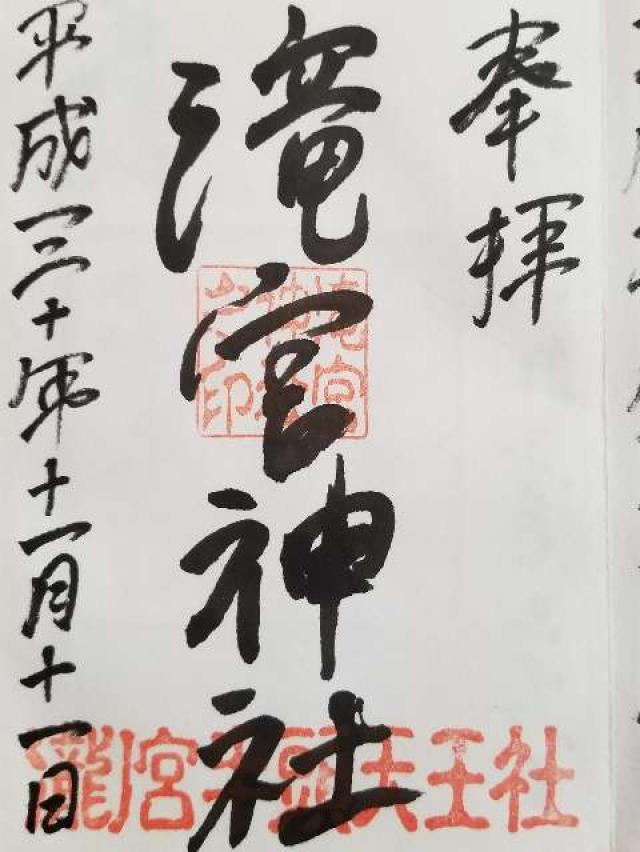 奉拝
滝宮神社
平成三十年十一月十一日
滝宮
神社
之印
瀧宮牛頭天王社